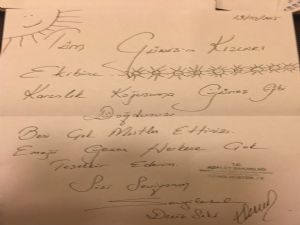 Tüm Güneşin Kızları
Ekibine
Karanlık Koğuşuma Güneş Gibi
Doğdunuz
Beni Çok Mutlu Ettiniz
Emeği Geçen Herkese Çok
Teşekkür Ederim
Sizi Seviyorum
Deniz Seki
T.C.